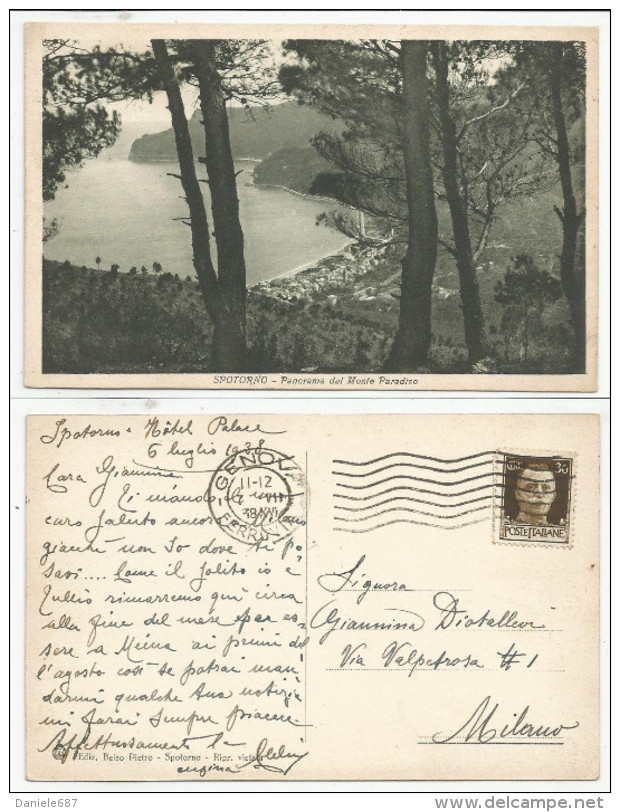 SPOTORNO - Panorama dal Monte Paradiso
Spotorno - Hôtel Palace
6 luglio 1938
Cara Giannina
Ti mando, il
caro saluto ancora
giacchè non so dove ti po
savi.... Come il solito io e
Tullio rimarremo qui circa
alla fine del mese per es=
sere a Meina ai primi del
l'agosto così se potrai man
darmi qualche tua notizia
mi farai sempre piacere.
Affettuosamente la
cugina
Ediz. Beiso Pietro - Spotorno - Ripr. vietata
GENOVA
11-12
7 VII
38 XVI
FERROVIA
30
POSTE ITALIANE
Signora
Giannina Diotallevi
Via Valpetrosa # 1
Milano
Daniele687